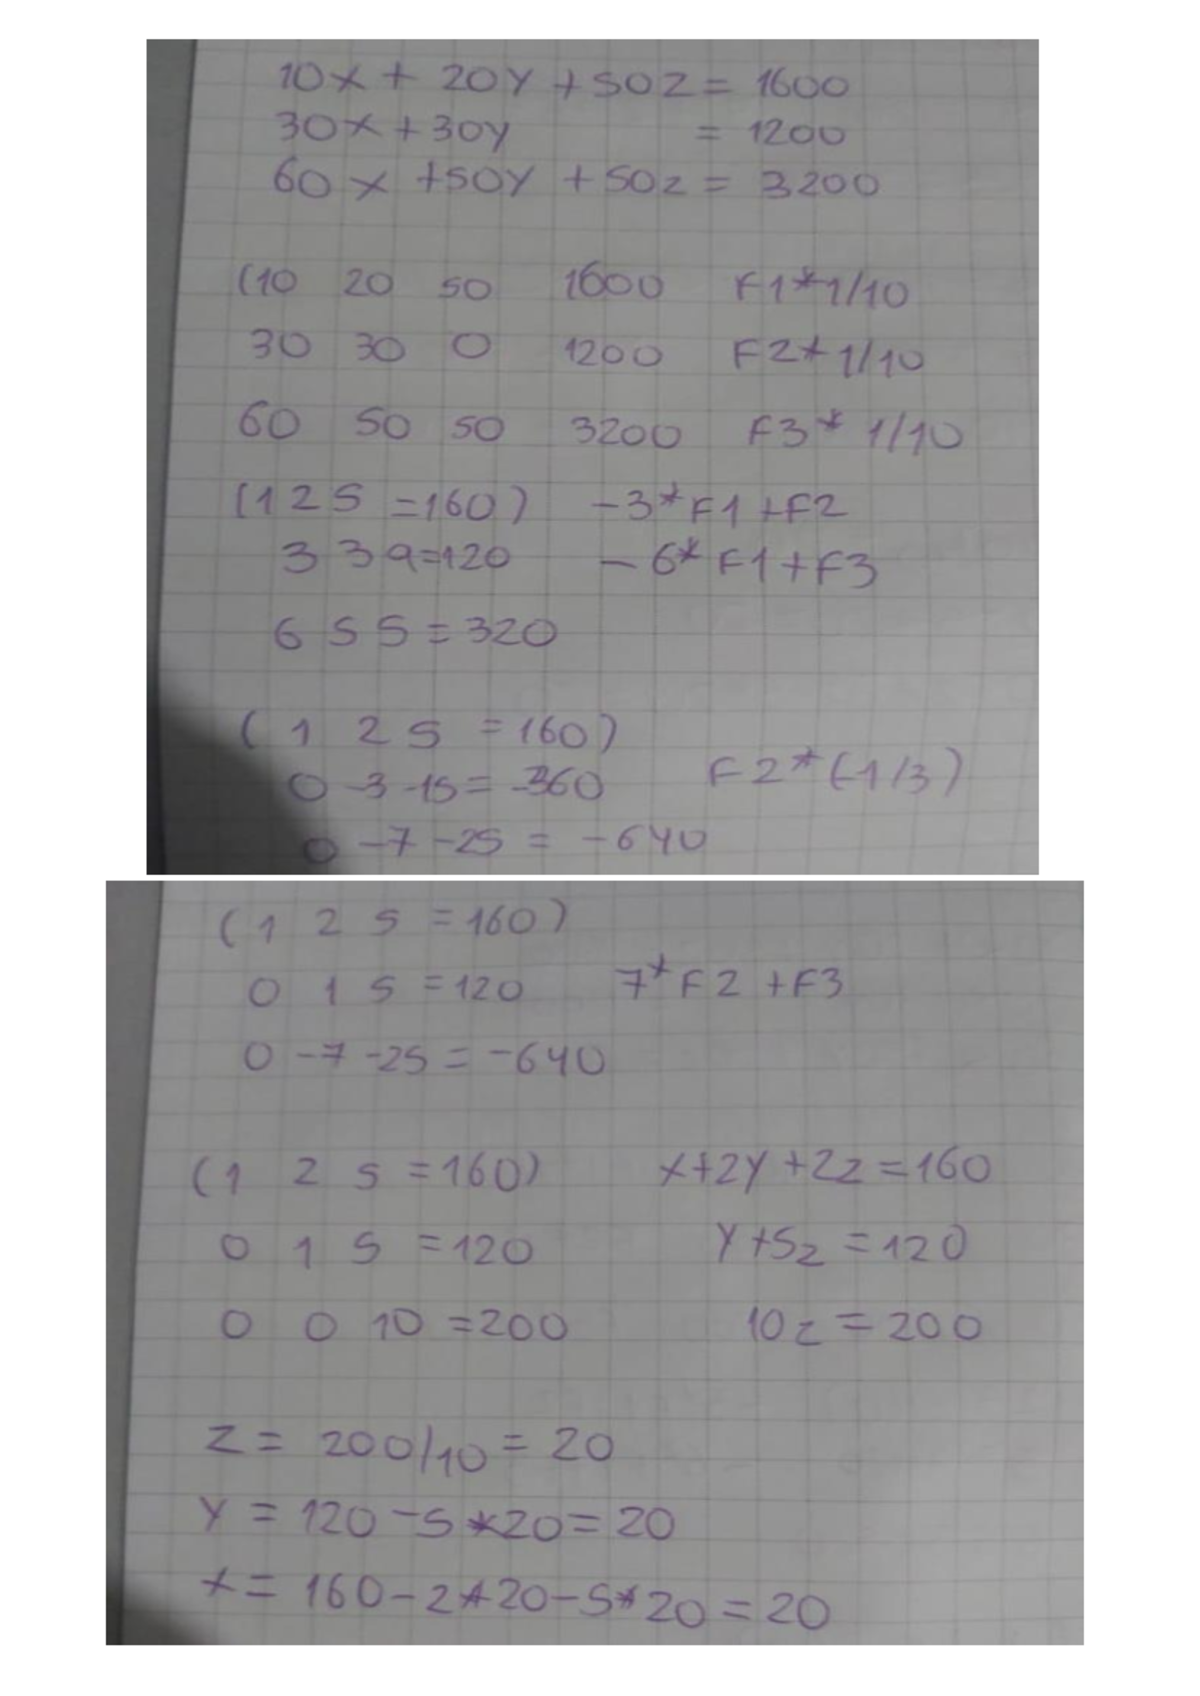 10x + 20y + 50z = 1600
30x + 30y = 1200
60x + 50y + 50z = 3200
(10 20 50 1600 F1*1/10
30 30 0 1200 F2*1/10
60 50 50 3200 F3*1/10
(1 2 5 =160) -3*F1+F2
3 3 9=120 -6*F1+F3
6 5 5 = 320
(1 2 5 =160)
0 -3 -15 = -360 F2*(-1/3)
0 -7 -25 = -640
(1 2 5 =160)
0 1 5 =120 7*F2 +F3
0 -7 -25 = -640
(1 2 5 =160) x+2y+2z=160
0 1 5 =120 y+5z=120
0 0 10 =200 10z=200
z = 200/10 = 20
y = 120-5*20=20
x = 160-2*20-5*20=20